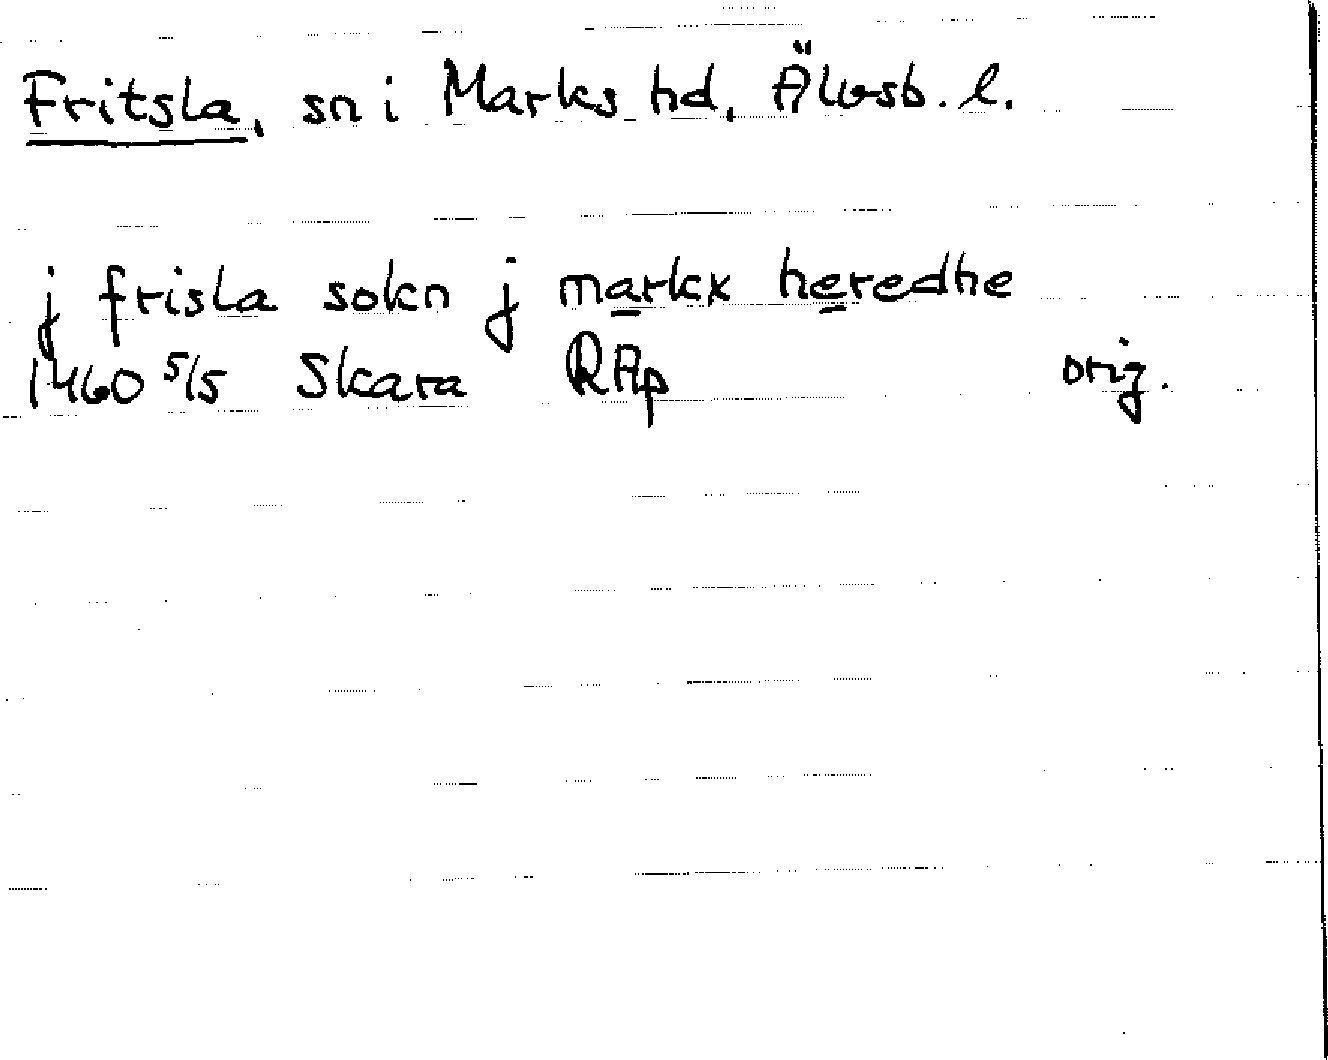 Fritsla, sn i Marks hd, Älvsb. l.
j frisla sokn j markx heredhe
1460 5/5 Skara RAp orig.